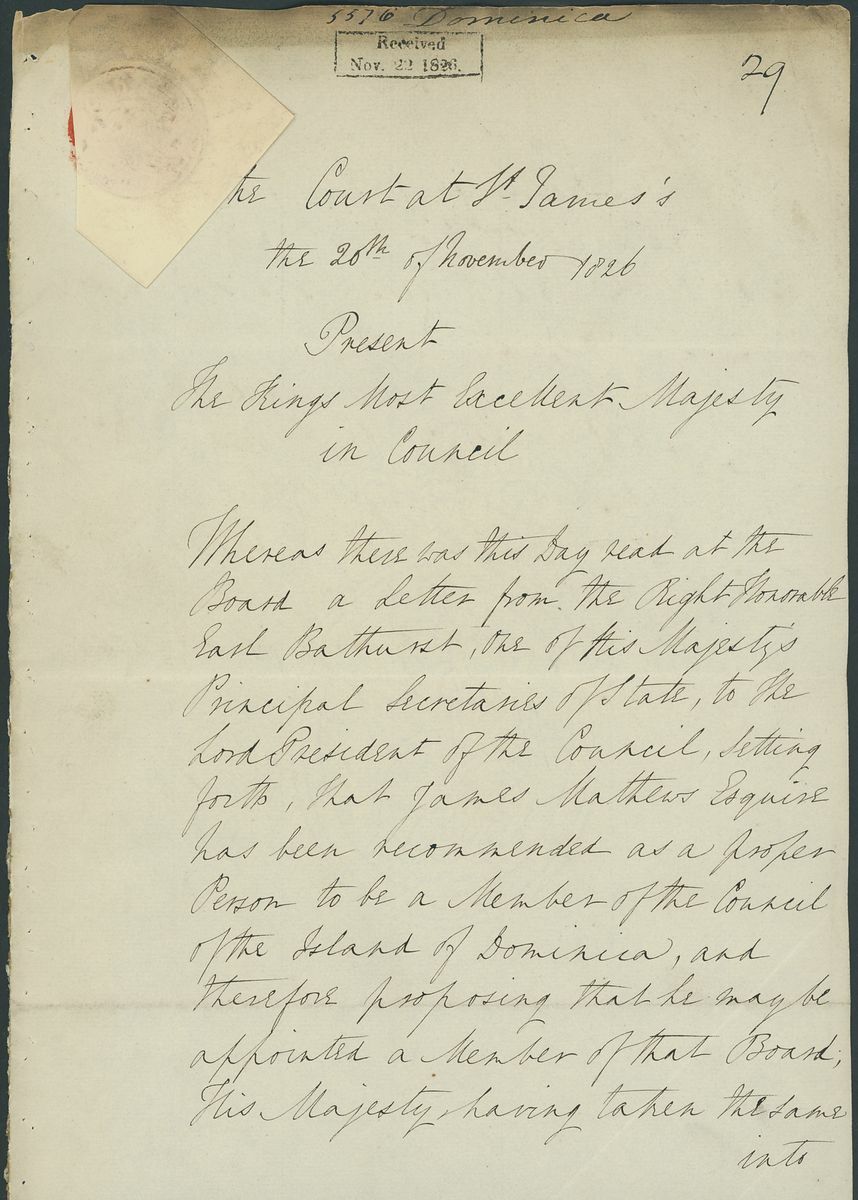 5576 Dominica
Received
Nov. 22 1826.
29
the Court at St. James's
the 20th of November 1826
Present
The Kings Most Excellent Majesty
in Council
Whereas there was this Day read at the
Board a Letter from the Right Honorable
Earl Bathurst, one of His Majesty's
Principal Secretaries of State, to the
Lord President of the Council, setting
forth, that James Mathews Esquire
has been recommended as a proper
Person to be a Member of the Council
of the Island of Dominica, and
therefore proposing that he may be
appointed a Member of that Board;
His Majesty, having taken the same
into